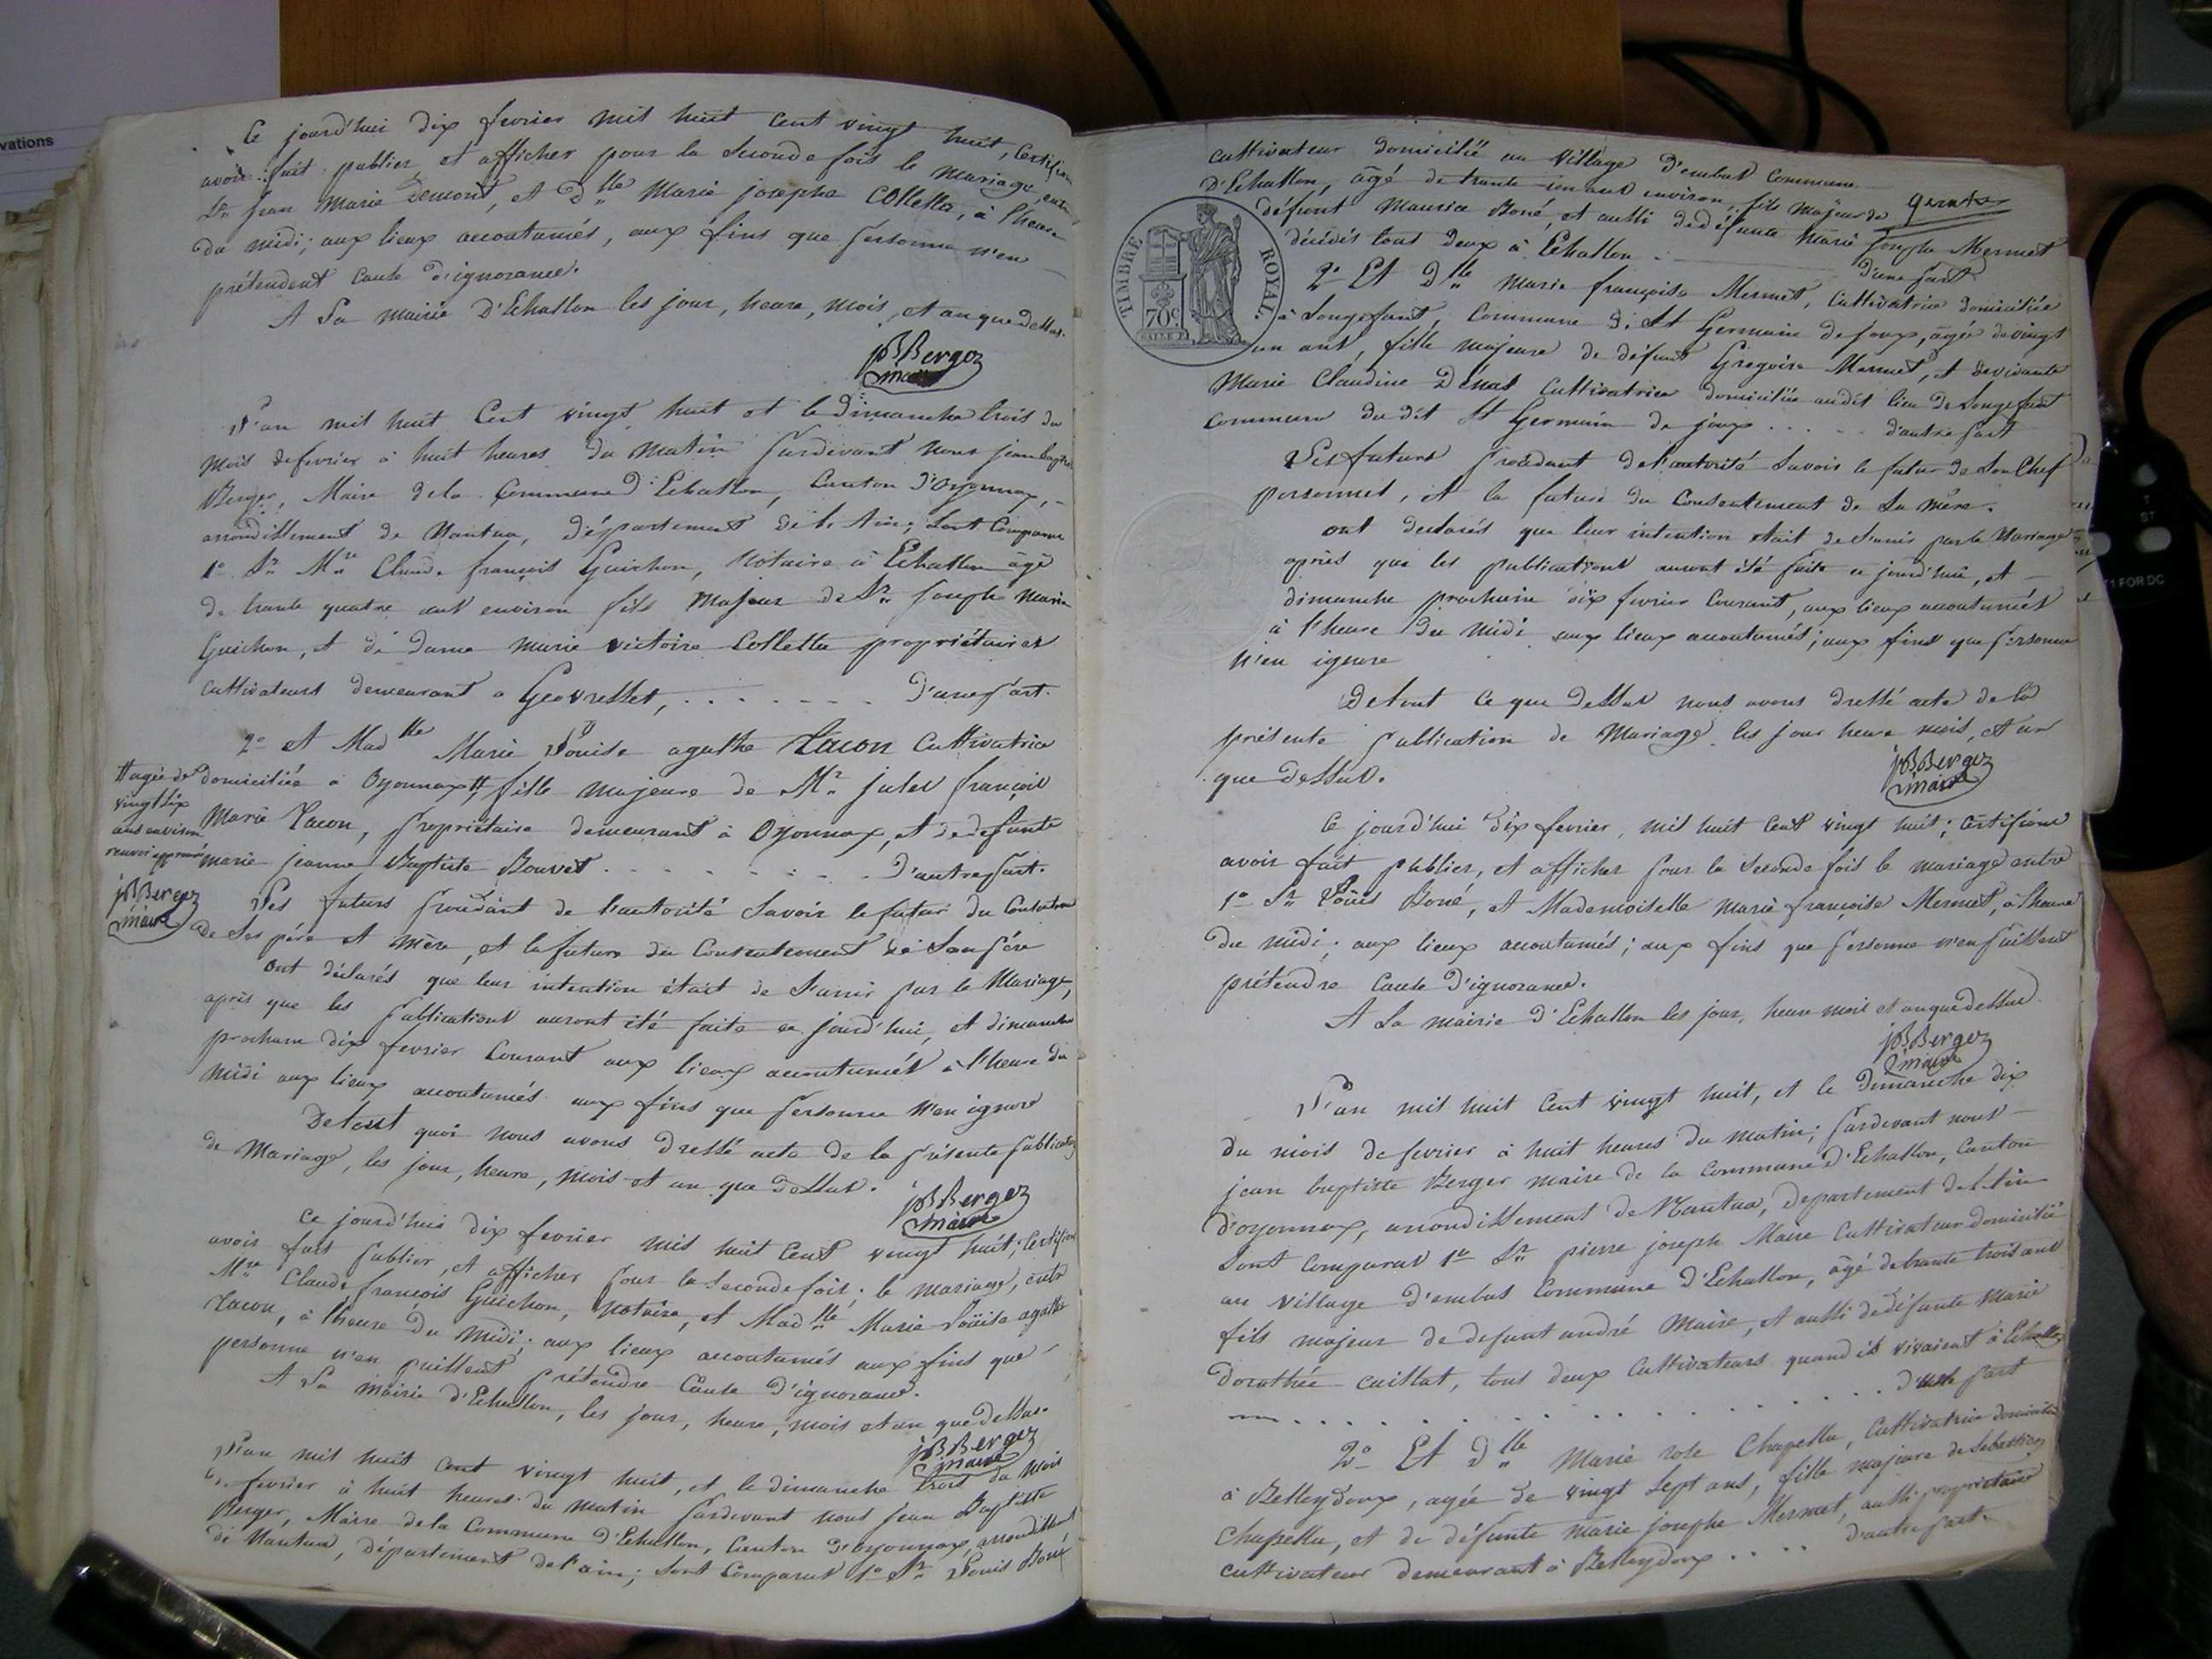 vations
Ce jourd'hui dix fevrier mil huit cent vingt huit, Certifions
avoir fait publier et afficher pour la Seconde fois le mariage entre
Sr Jean Marie Demont, et Dlle Marie josephe Colletta, à l'heure
du midi; aux lieux accoutumés, aux fins que personne n'en
prétendent Cause d'ignorance.
A La mairie D'Echallon les jour, heure, mois, et an que dessus.
jBBerger
maire
L'an mil huit Cent vingt huit et le Dimanche trois du
mois de fevrier à huit heures du matin pardevant nous jean baptiste
Berger, Maire de la Commune d'Echallon, Canton d'Oyonnax,
arrondissement de Nantua, Département de l'Ain; Sont Comparus
1° Sr Mre Claude françois Guichon, Notaire à Echallon âgé
de trente quatre ans environ fils Majeur de Sr Joseph Marie
Guichon, et de dame marie victoire Colletta propriétaires
cultivateurs demeurant a Geovresset, . . . . . . . D'une part.
2° et Madlle Marie Louise agathe Tacon Cultivatrice
domiciliée à Oyonnax #, fille majeure de Mr jules françois
# agée de
vingt six
ans environ
renvoi approuvé
jBBerger
maire
Marie Tacon, propriétaire demeurant à Oyonnax, et de defunte
marie jeanne Baptiste Bouvet . . . . . . . D'autre part.
Les futurs procédant de l'autorité Savoir le futur du Consentement
de Ses père et mère, et la future du Consentement de Son père
ont déclarés que leur intention était de S'unir par le Mariage,
après que les publications auront été faite ce jourd'hui, et dimanche
prochain dix fevrier Courant aux lieux accoutumés à l'heure du
midi aux lieux accoutumés aux fins que personne n'en ignore
De tout quoi nous avons dressé acte de la présente publication
de Mariage, les jour, heure, mois et an que dessus.
jBBerger
maire
Ce jourd'hui dix fevrier mil huit Cent vingt huit; Certifions
avoir fait publier, et afficher pour la Seconde fois; le mariage, entre
Mre Claude françois Guichon, Notaire, et Madlle Marie Louise agathe
Tacon, à l'heure du midi; aux lieux accoutumés aux fins que
personne n'en puissent prétendre Cause D'ignorance.
A La mairie d'Echallon, les jour, heure, mois et an que dessus.
jBBerger
maire
L'an mil huit cent vingt huit, et le dimanche trois du mois
de fevrier à huit heures du matin pardevant nous Jean Baptiste
Berger, Maire de la Commune D'Echallon, Canton d'oyonnax, arrondissement
de Nantua, département de l'ain; Sont Comparus 1° Sr Louis Boné
cultivateur domicilié au Village d'embas Commune
D'Echallon, âgé de trente ans environ, fils majeur de
défunt Maurice Boné, et aussi de défunte Marie Josephe Mermet
décédés tous deux à Echallon . D'une part
2° Et Dlle Marie françoise Mermet, cultivatrice domiciliée
à Longefant, Commune de St Germain de Joux, agée de vingt
un ans, fille majeure de défunt Gregoire Mermet, et de vivante
Marie Claudine Cultivatrice domiciliée audit lieu de Longefant
commune du dit St Germain de joux . . . . d'autre part
TIMBRE ROYAL.
70c
Les futurs procédant de l'autorité Savoir le futur de Son Chef
personnel, et la future du Consentement de Sa mère.
ont declarés que leur intention était de S'unir par le Mariage
après que les publications auront été faite ce jourd'hui, et
dimanche prochain dix fevrier Courant, aux lieux accoutumés
à l'heure du Midi aux lieux accoutumés; aux fins que personne
n'en ignore
De tout ce que dessus nous avons dressé acte de la
présente publication de Mariage les jour heure mois, et an
que dessus.
jBBerger
maire
Ce jourd'hui dix fevrier, mil huit Cent vingt huit; Certifions
avoir fait publier, et afficher pour la Seconde fois le mariage entre
1° Sr Louis Boné, et Mademoiselle Marie françoise Mermet, à l'heure
du midi; aux lieux accoutumés; aux fins que personne n'en puissent
prétendre Cause D'ignorance.
A La mairie d'Echallon les jour, heure mois et an que dessus
jBBerger
maire
L'an mil huit Cent vingt huit, et le Dimanche dix
du mois de fevrier à huit heures du matin; pardevant nous
jean baptiste Berger maire de la Commune d'Echallon, Canton
D'oyonnax, arrondissement de Nantua, département de l'Ain
Sont Comparus 1° Sr pierre joseph Maire Cultivateur domicilié
au village d'embas Commune d'Echallon, âgé de trente trois ans
fils majeur de defunt andré Maire, et aussi de défunte Marie
Dorothée caillat, tous deux Cultivateurs quand ils vivaient à Echallon
. . . . . . . . . . . . d'une part
2° Et Dlle Marie rose Chapellu, Cultivatrice domiciliée
à Belleydoux, agée de vingt Sept ans, fille majeure de Sebastien
Chapellu, et de défunte Marie josephe Mermet, aussi propriétaire
cultivateur demeurant à Belleydoux . . . . d'autre part.
T
ST
T1 FOR DC